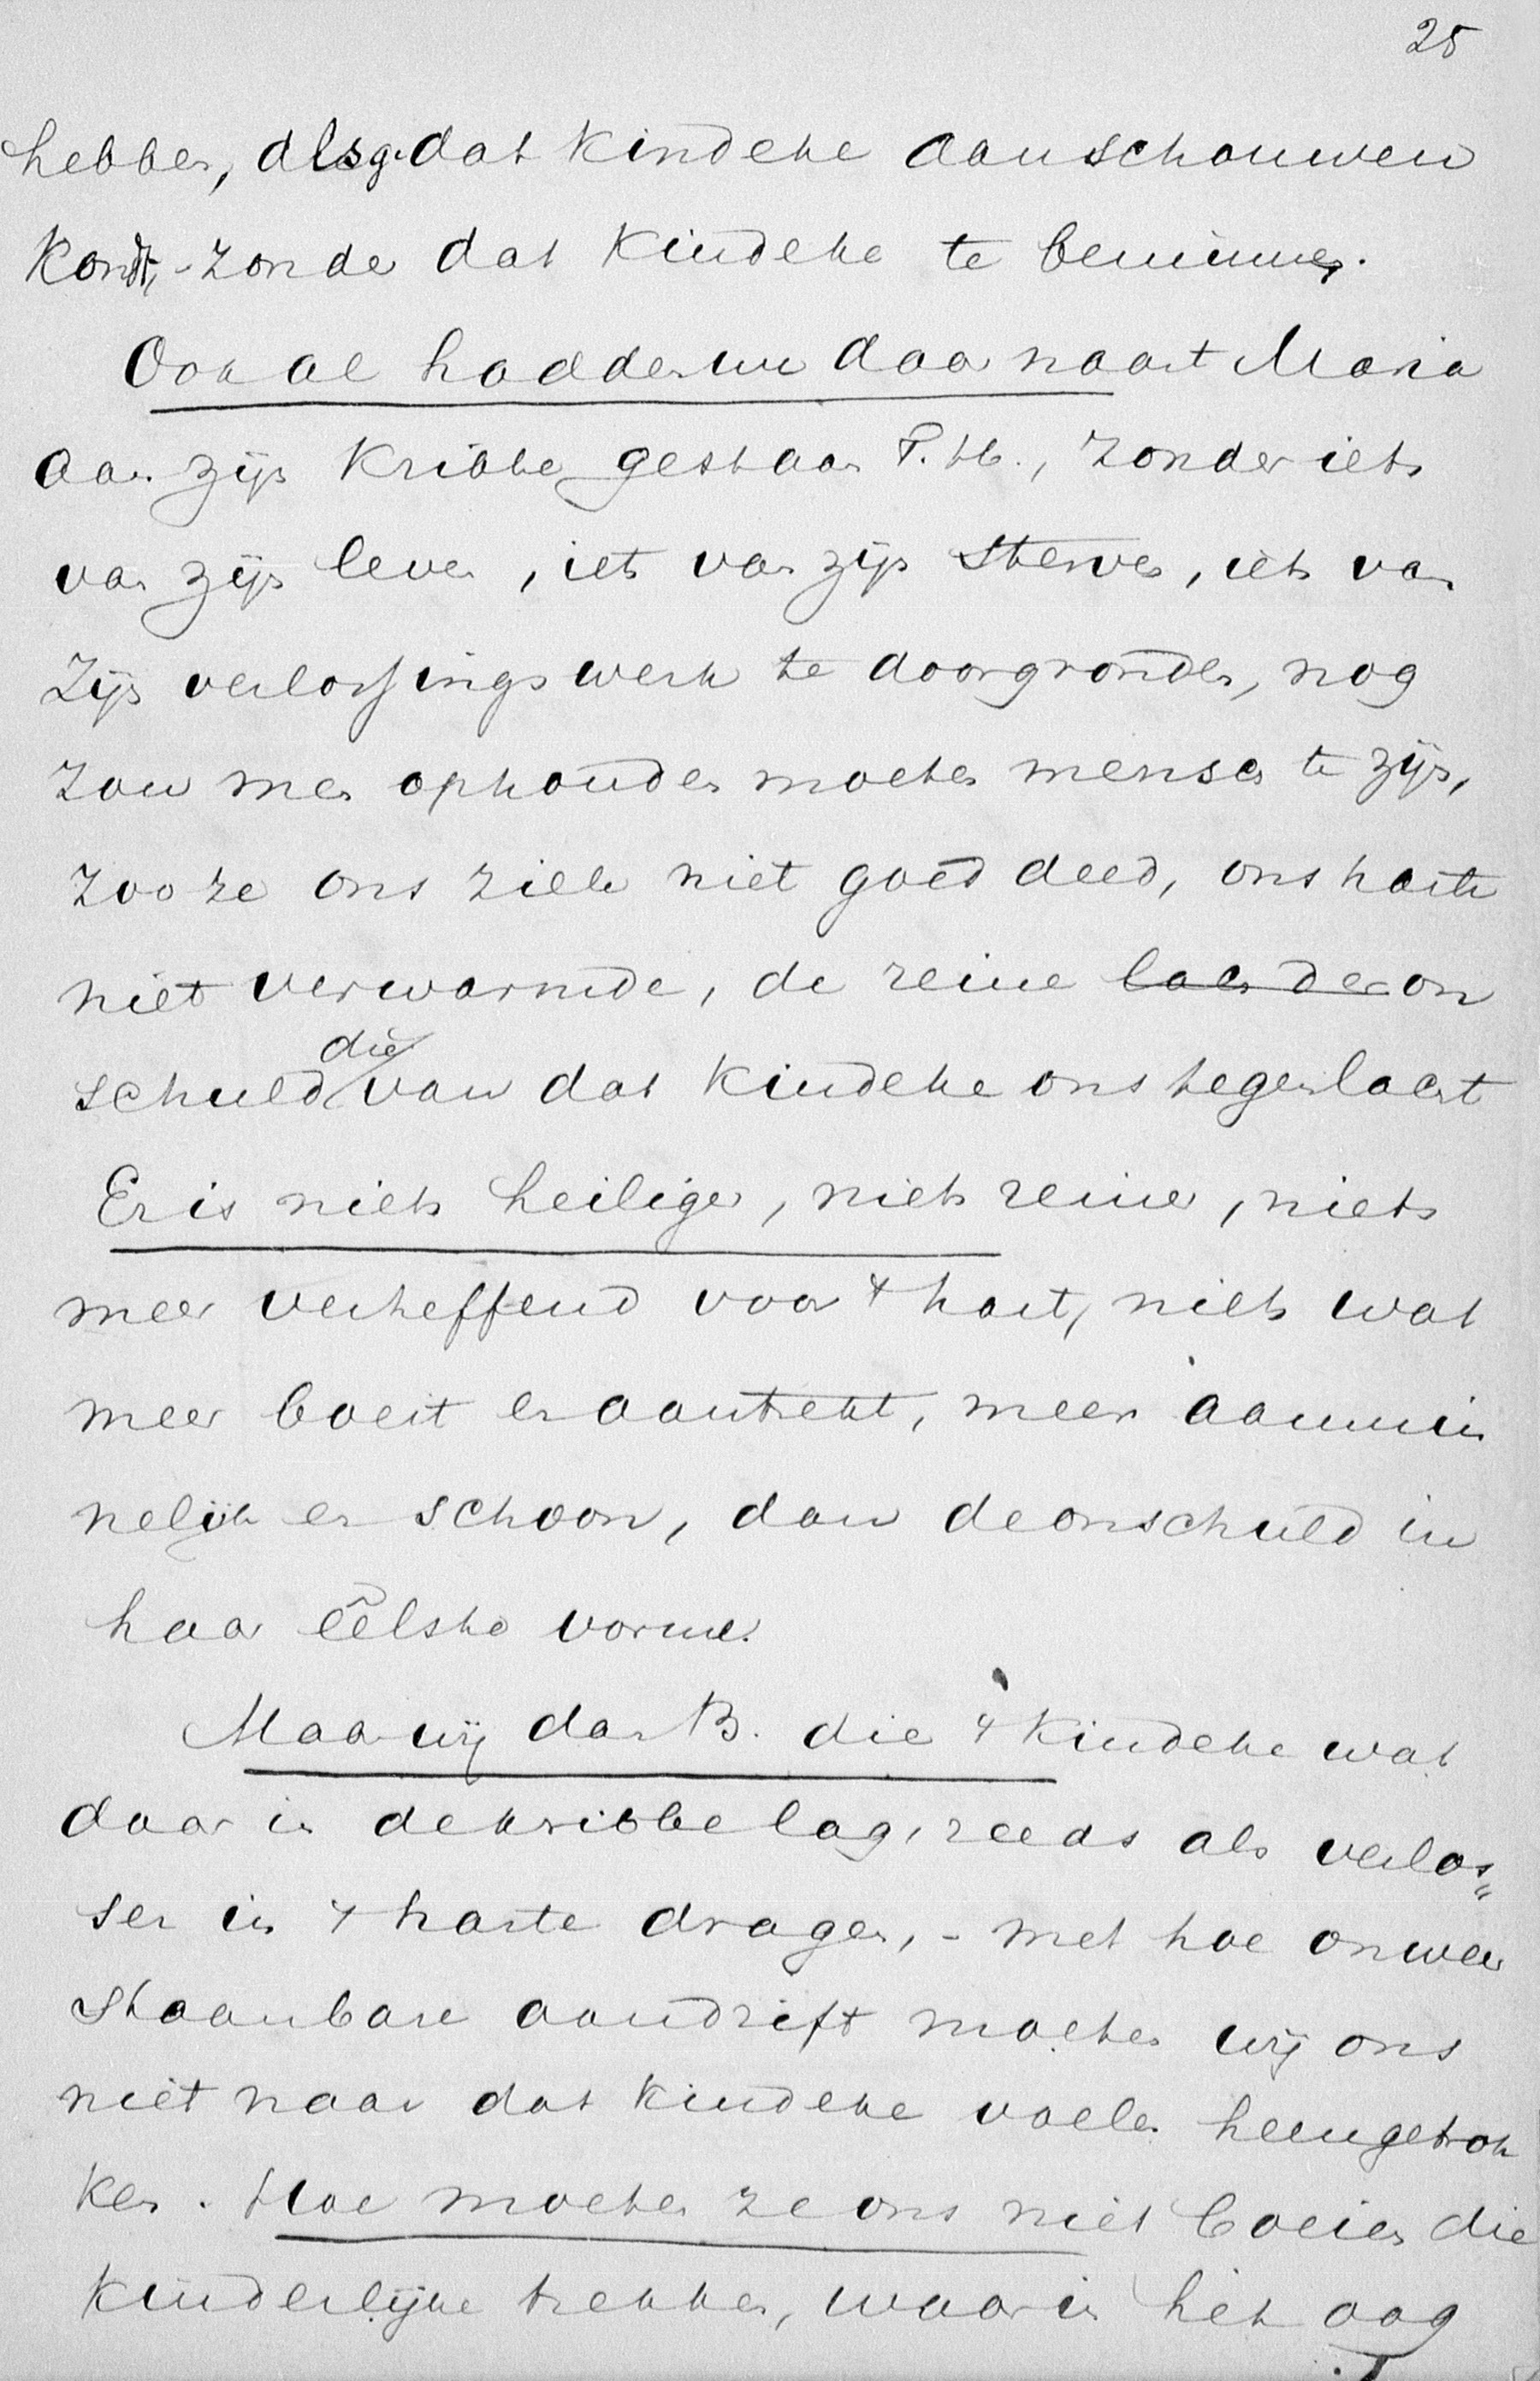 25
hebben, als g. dat kindeke aanschouwen
kondt, - zonder dat kindeke te beminnen.
Ook al hadden we daar naast Maria
aan zijn kribbe gestaan T. H., zonder iets
van zijn leven, iets van zijn sterven, iets van
zijn verlossingswerk te doorgronden, nog
zou men ophouden moeten mensch te zijn,
zoo ze ons ziele niet goed deed, ons harte
niet verwarmde, de reine on
schuld die van dat kindeke ons tegenlacht
Er is niets heiliger, niets reiner, niets
meer verheffend voor 't hart, niets wat
meer boeit en aantrekt, meer aanmin
nelijk en schoon, dan de onschuld in
haar eêlste vormen.
Maar wij dan B. die 't kindeke wat
daar in de kribbe lag, reeds als verlos=
ser in 't harte dragen, - met hoe onweer
staanbare aandrift moeten wij ons
niet naar dat kindeke voelen heengetrok
ken. Hoe moeten ze ons niet boeien die
kinderlijke trekken, waarin het oog